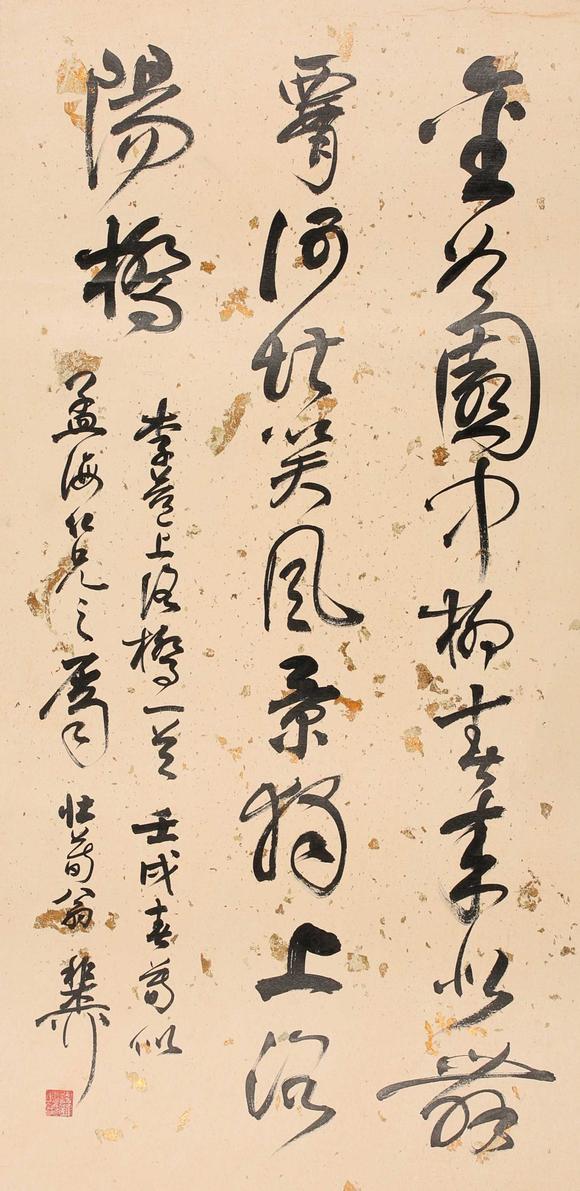 金谷園中柳春來似舞
腰何堪笑風景獨上洛
陽橋
李益上洛橋一首 壬戌春寫似
孟海仁兄之屬 壯暮翁 稚柳